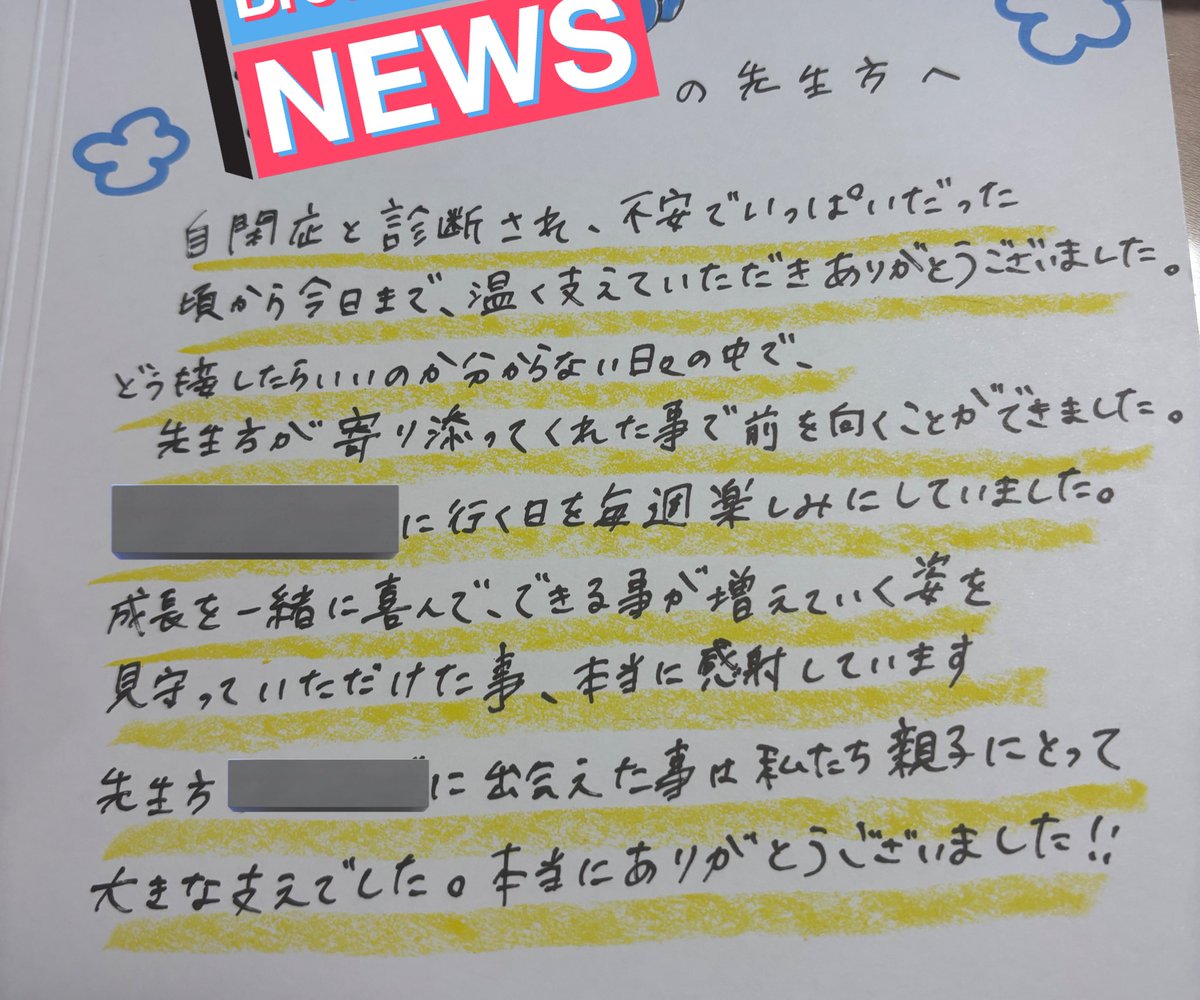 NEWS
の先生方へ
自閉症と診断され、不安でいっぱいだった
頃から今日まで、温く支えていただきありがとうございました。
どう接したらいいのか分からない日々の中で、
先生方が寄り添ってくれた事で前を向くことができました。
に行く日を毎週楽しみにしていました。
成長を一緒に喜んで、できる事が増えていく姿を
見守っていただけた事、本当に感謝しています
先生方
に出会えた事は私たち親子にとって
大きな支えでした。本当にありがとうございました!!